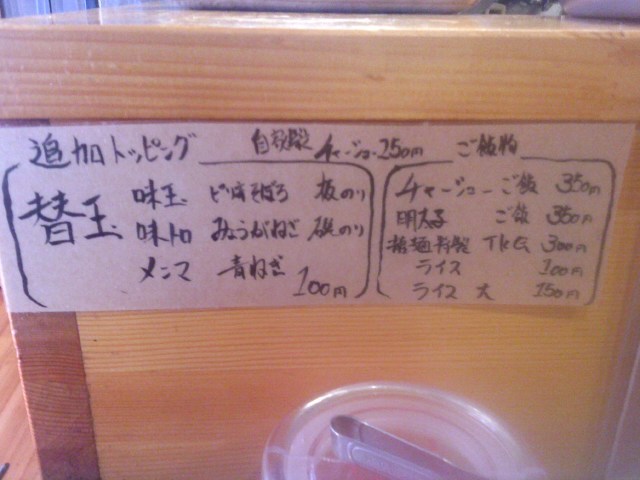 追加トッピング
チャーシュー250円
ご飯物
替玉
味玉 ピリ辛そぼろ 板のり
味トロ みょうがねぎ 磯のり
メンマ 青ねぎ
100円
チャーシューご飯 350円
明太子ご飯 350円
TKG 300円
ライス 100円
ライス 大 150円